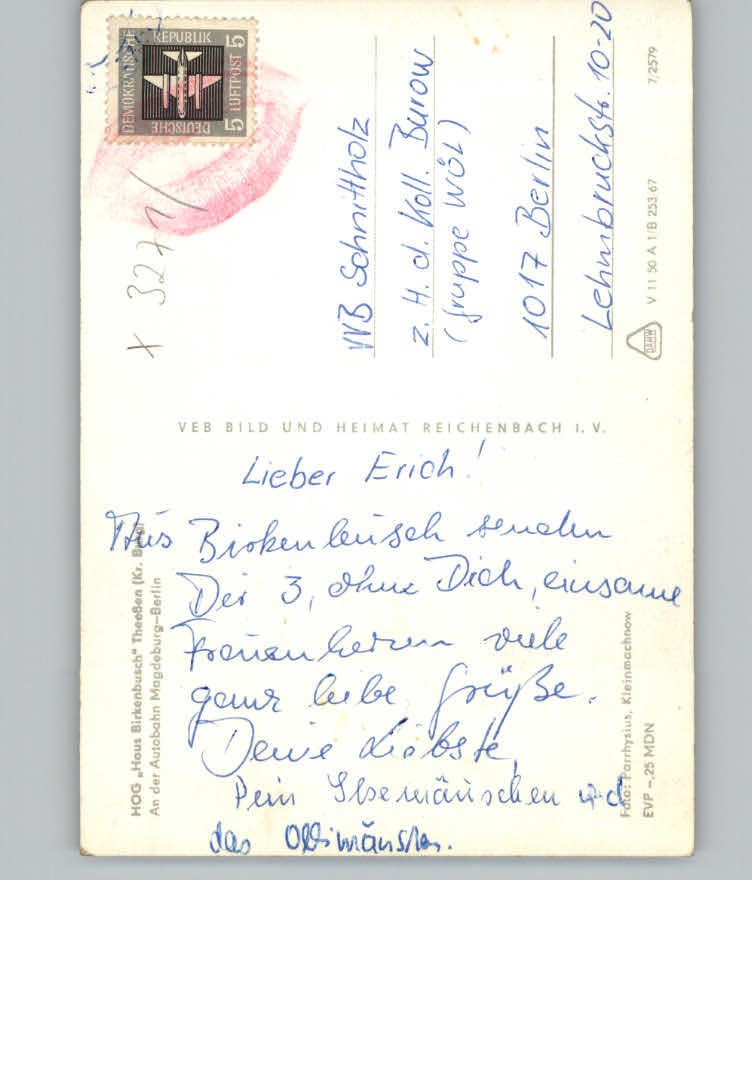 Lieber Erich!
Aus Birkenbusch senden
Dir 3, ohne Dich, einsame
Frauenherzen viele
ganz liebe Grüße.
Deine Liebste,
Dein Ilsemäuschen und
das
VVB Schnittholz
z. H. d. Koll. Burow
(Gruppe WÖL)
1017 Berlin
Lehmbruckstr. 10-20
X 3271/
DEUTSCHE
DEMOKRATISCHE
REPUBLIK
5 LUFTPOST 5
VEB BILD UND HEIMAT REICHENBACH I. V.
HOG „Haus Birkenbusch" Theeßen (Kr. Burg)
An der Autobahn Magdeburg–Berlin
Foto: Parrhysius, Kleinmachnow
EVP –,25 MDN
DAHW
V 11 50 A 1/B 253/67
7/2579